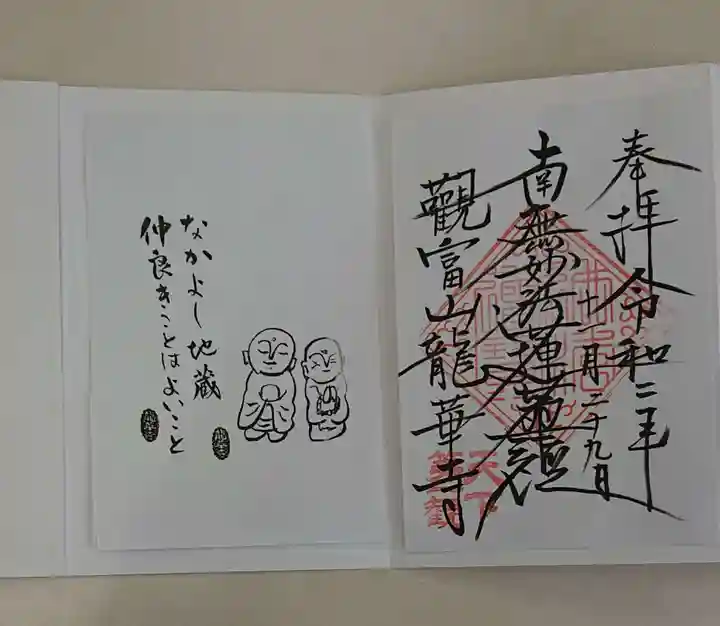 奉拝 令和二年
十一月二十九日
南無妙法蓮華経
觀富山龍華寺
天下
なかよし地蔵
仲良きことはよいこと